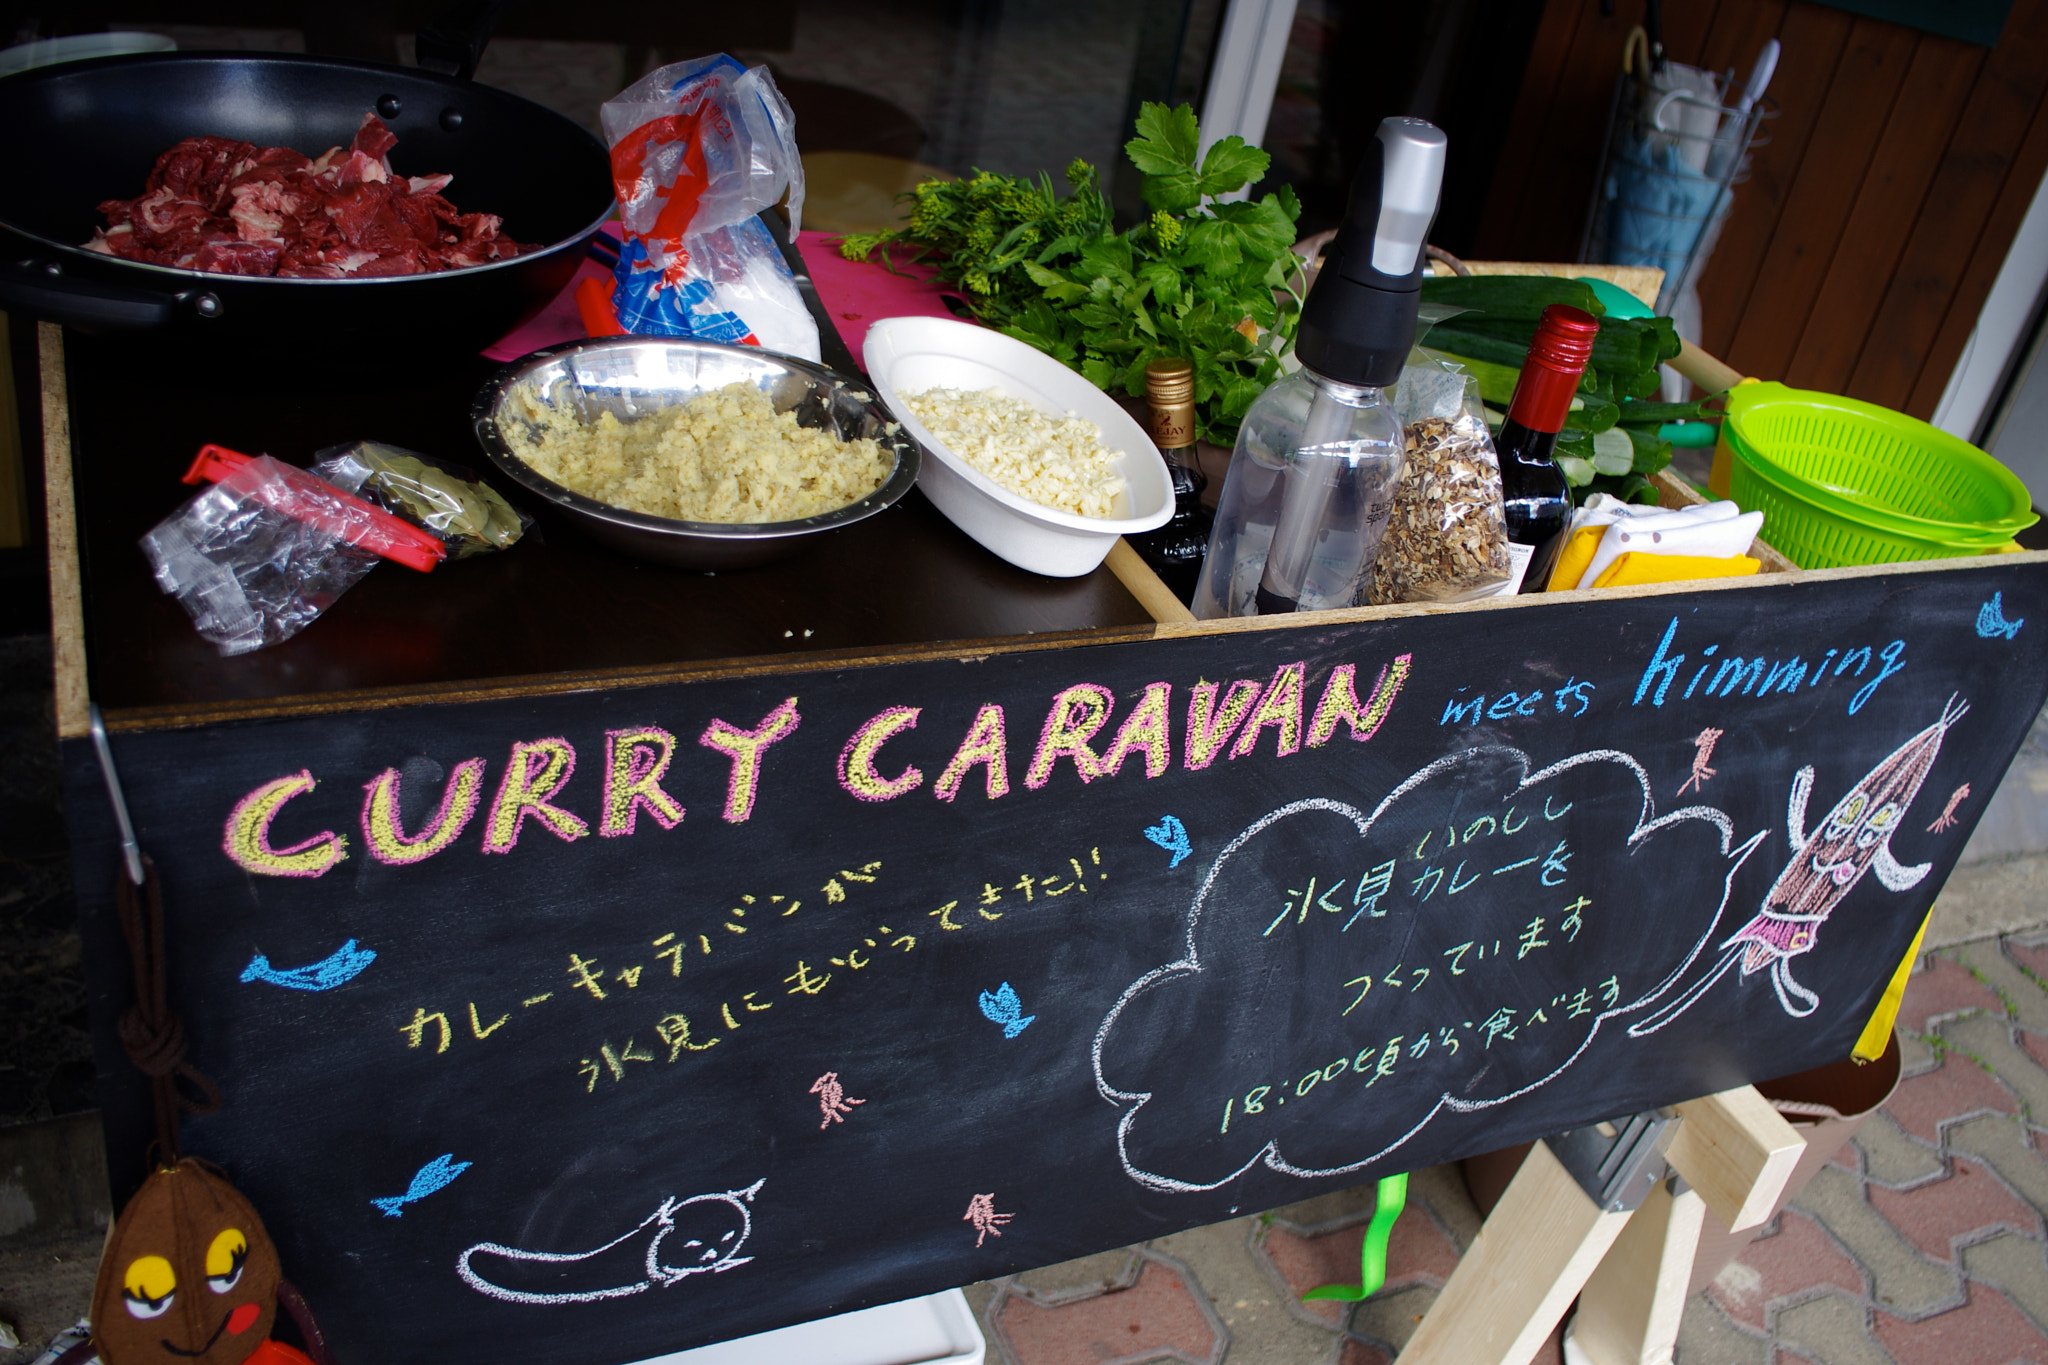 CURRY CARAVAN meets himming
カレーキャラバンが
氷見にもどってきた!!
いのしし
氷見カレーを
つくっています
18:00頃から食べます